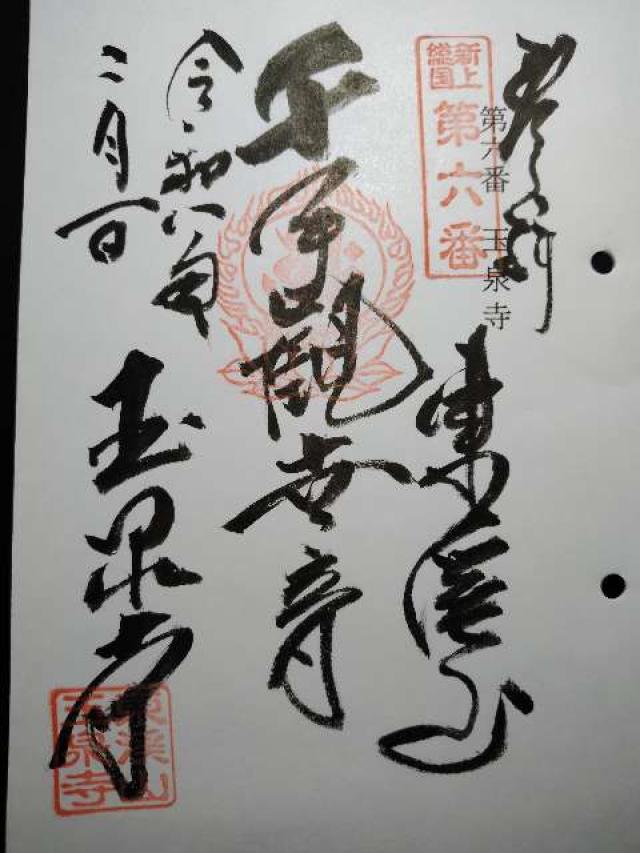 奉拝
第六番 玉泉寺
新上
総国
第六番
東溪山
千手觀世音
令和八年
二月一日
玉泉寺
東溪山
玉泉寺